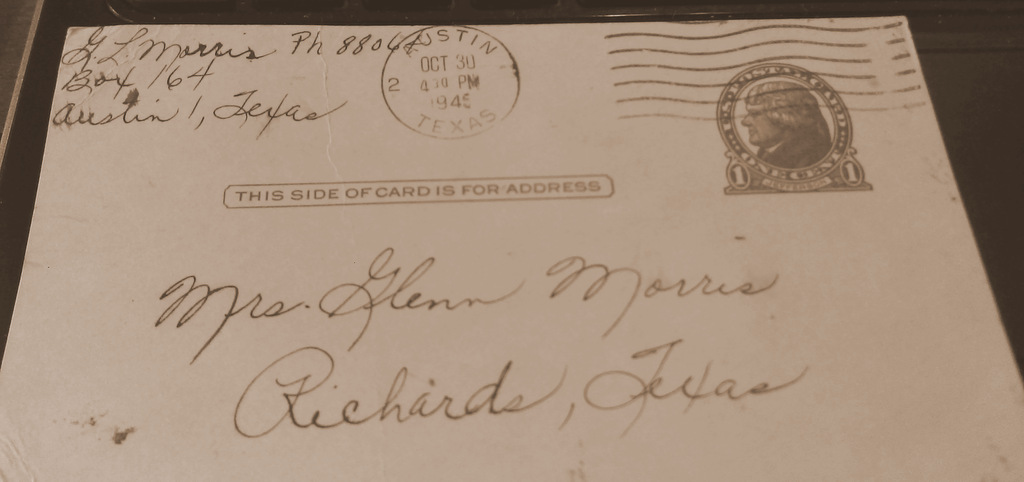 G L Morris Ph 8806
Box 164
Austin 1, Texas
AUSTIN
OCT 30
2 4 30 PM
1945
TEXAS
THIS SIDE OF CARD IS FOR ADDRESS
1 JEFFERSON 1
Mrs. Glenn Morris
Richards, Texas